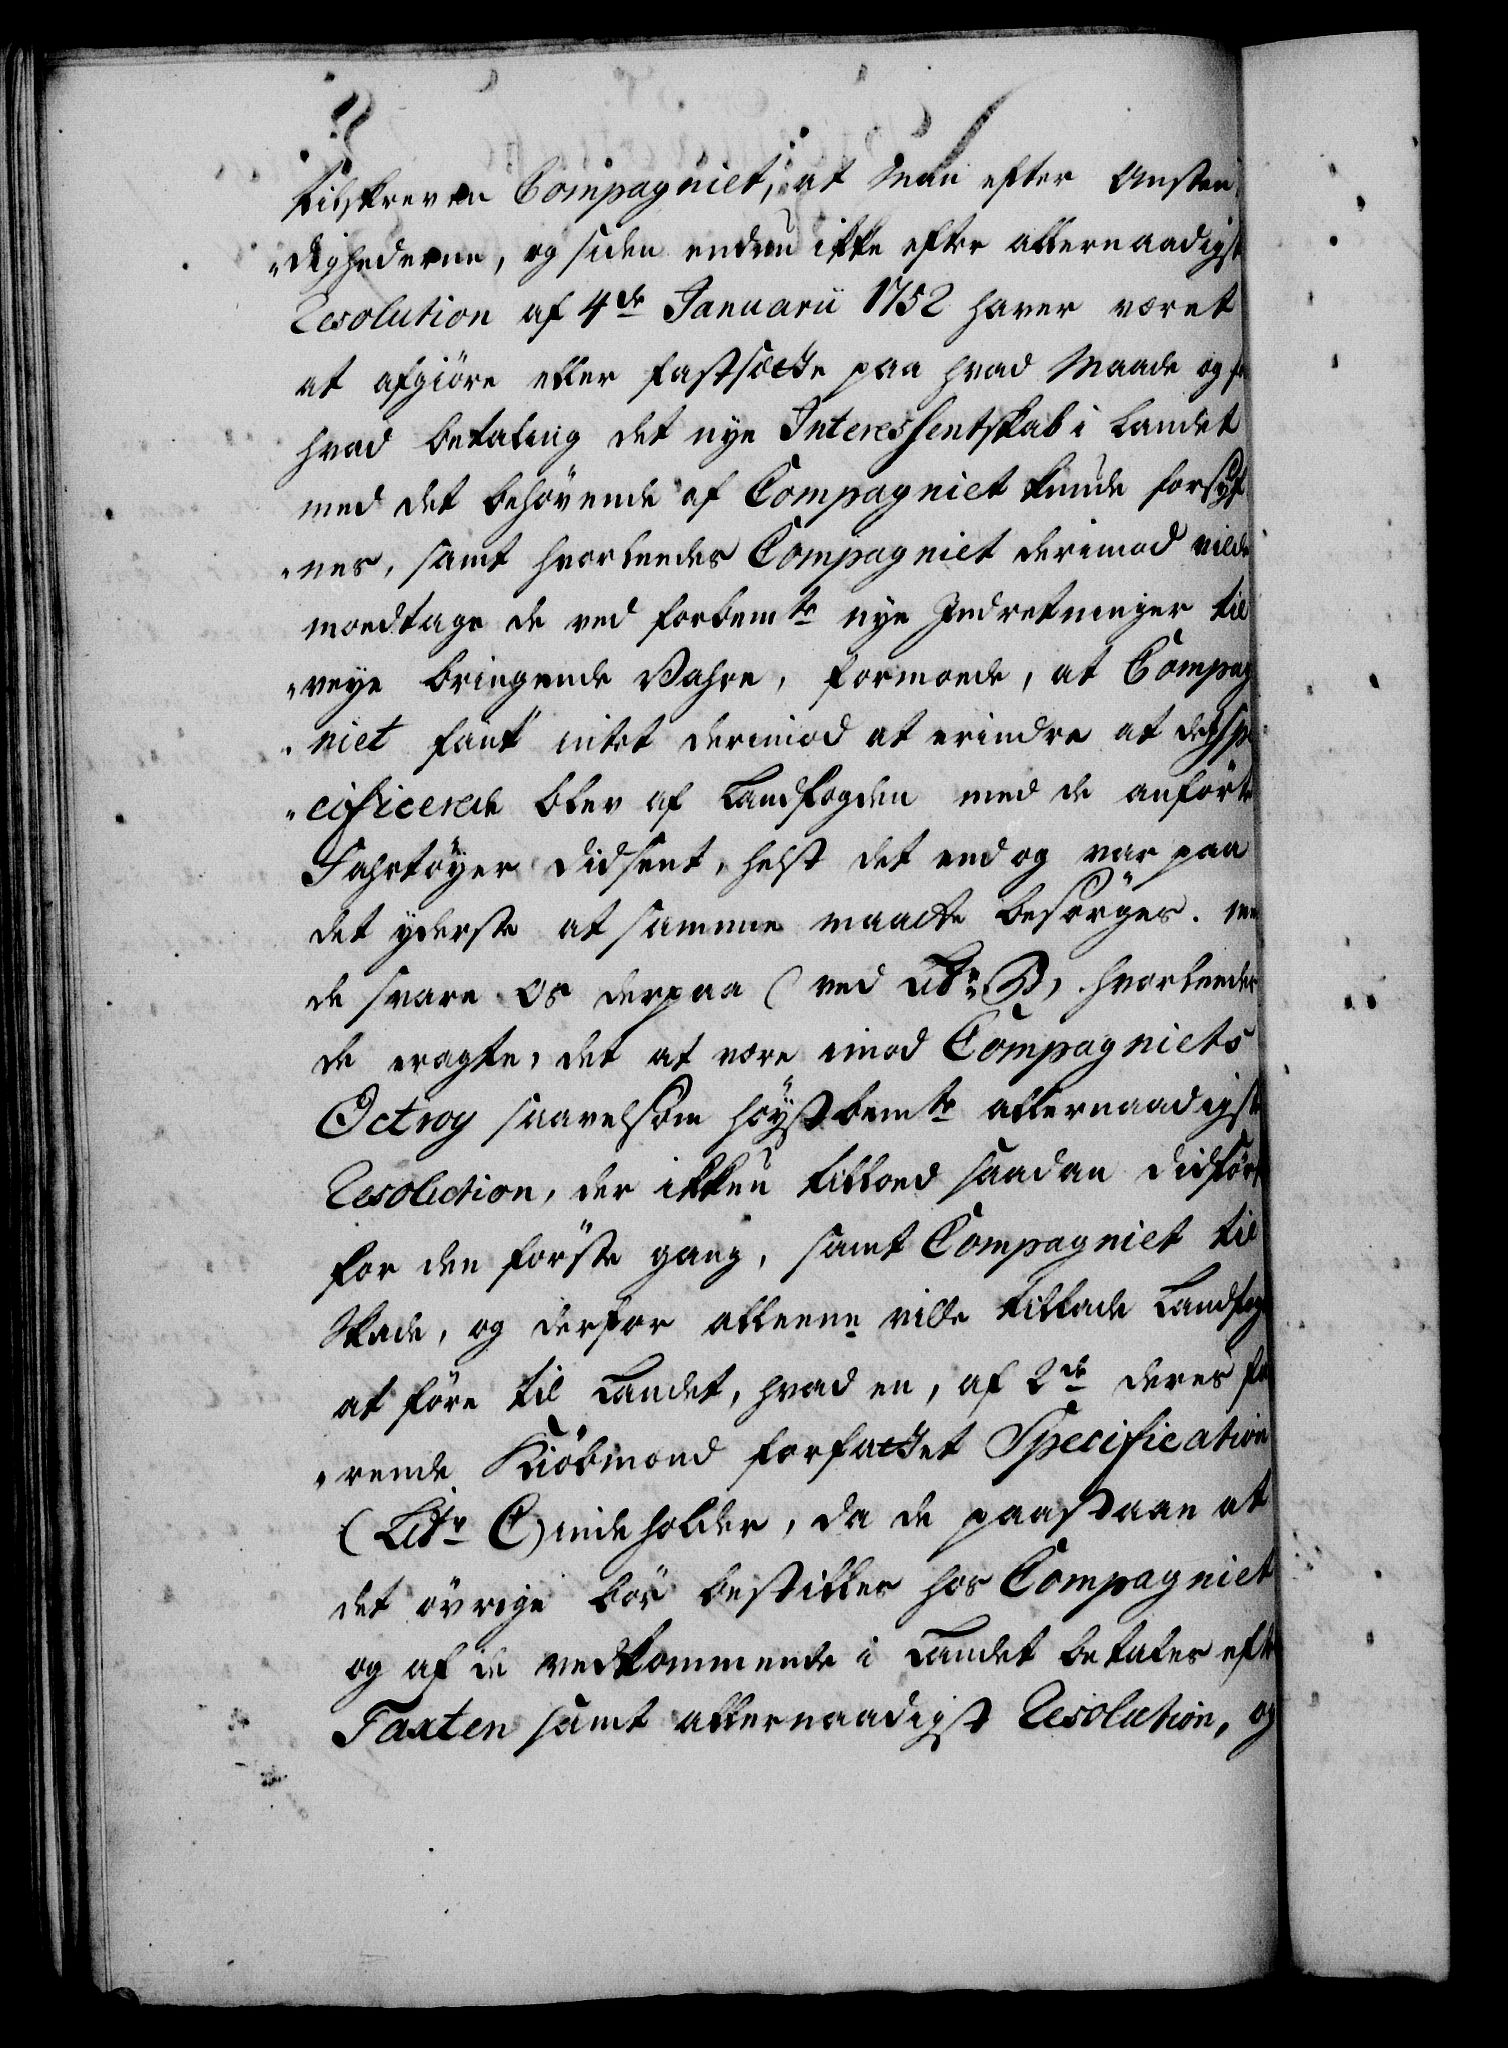 tilskreven Compagniet, at Man efter Omsten
„dighederne, og siden endnu ikke efter allernaadigst
Resolution af 4de Januarii 1752 haver været
at afgiöre eller fastsætte paa hvad Maade og for
hvad betaling det nye Interessentskab i Landet
med det behövende af Compagniet kunde forsÿ¬
„nes, samt hvorledes Compagniet derimod vilde
modtage de ved forbemte nye Indretninger til
„veye bringende Vahre, formoede, at Compag
„niet fant intet derimod at erindre at det spe
„cificerede blev af Landfogden med de anförte
Fahrtöyer didsent, helst det endog var paa
det yderste at samme maatte besörges. men
de svare os derpaa (ved Litr B) hvorleedes
de eragte, det at være imod Compagniets
Octroy saavelsom höystbemte allernaadigst
Resolution, der ikkun tillod saadan didför
for den förste gang, samt Compagniet til
Skade, og derfor alleene ville tillade Landfog
at före til Landet, hvad en, af 2de deres fa
„rende Kiöbmænd forfattet Specification
(Litr C) indeholder, da de paastaae at
det övrige bör bestilles hos Compagniet
og af de vedkommende i Landet betales efter
Taxten samt allernaadigst Resolution, og